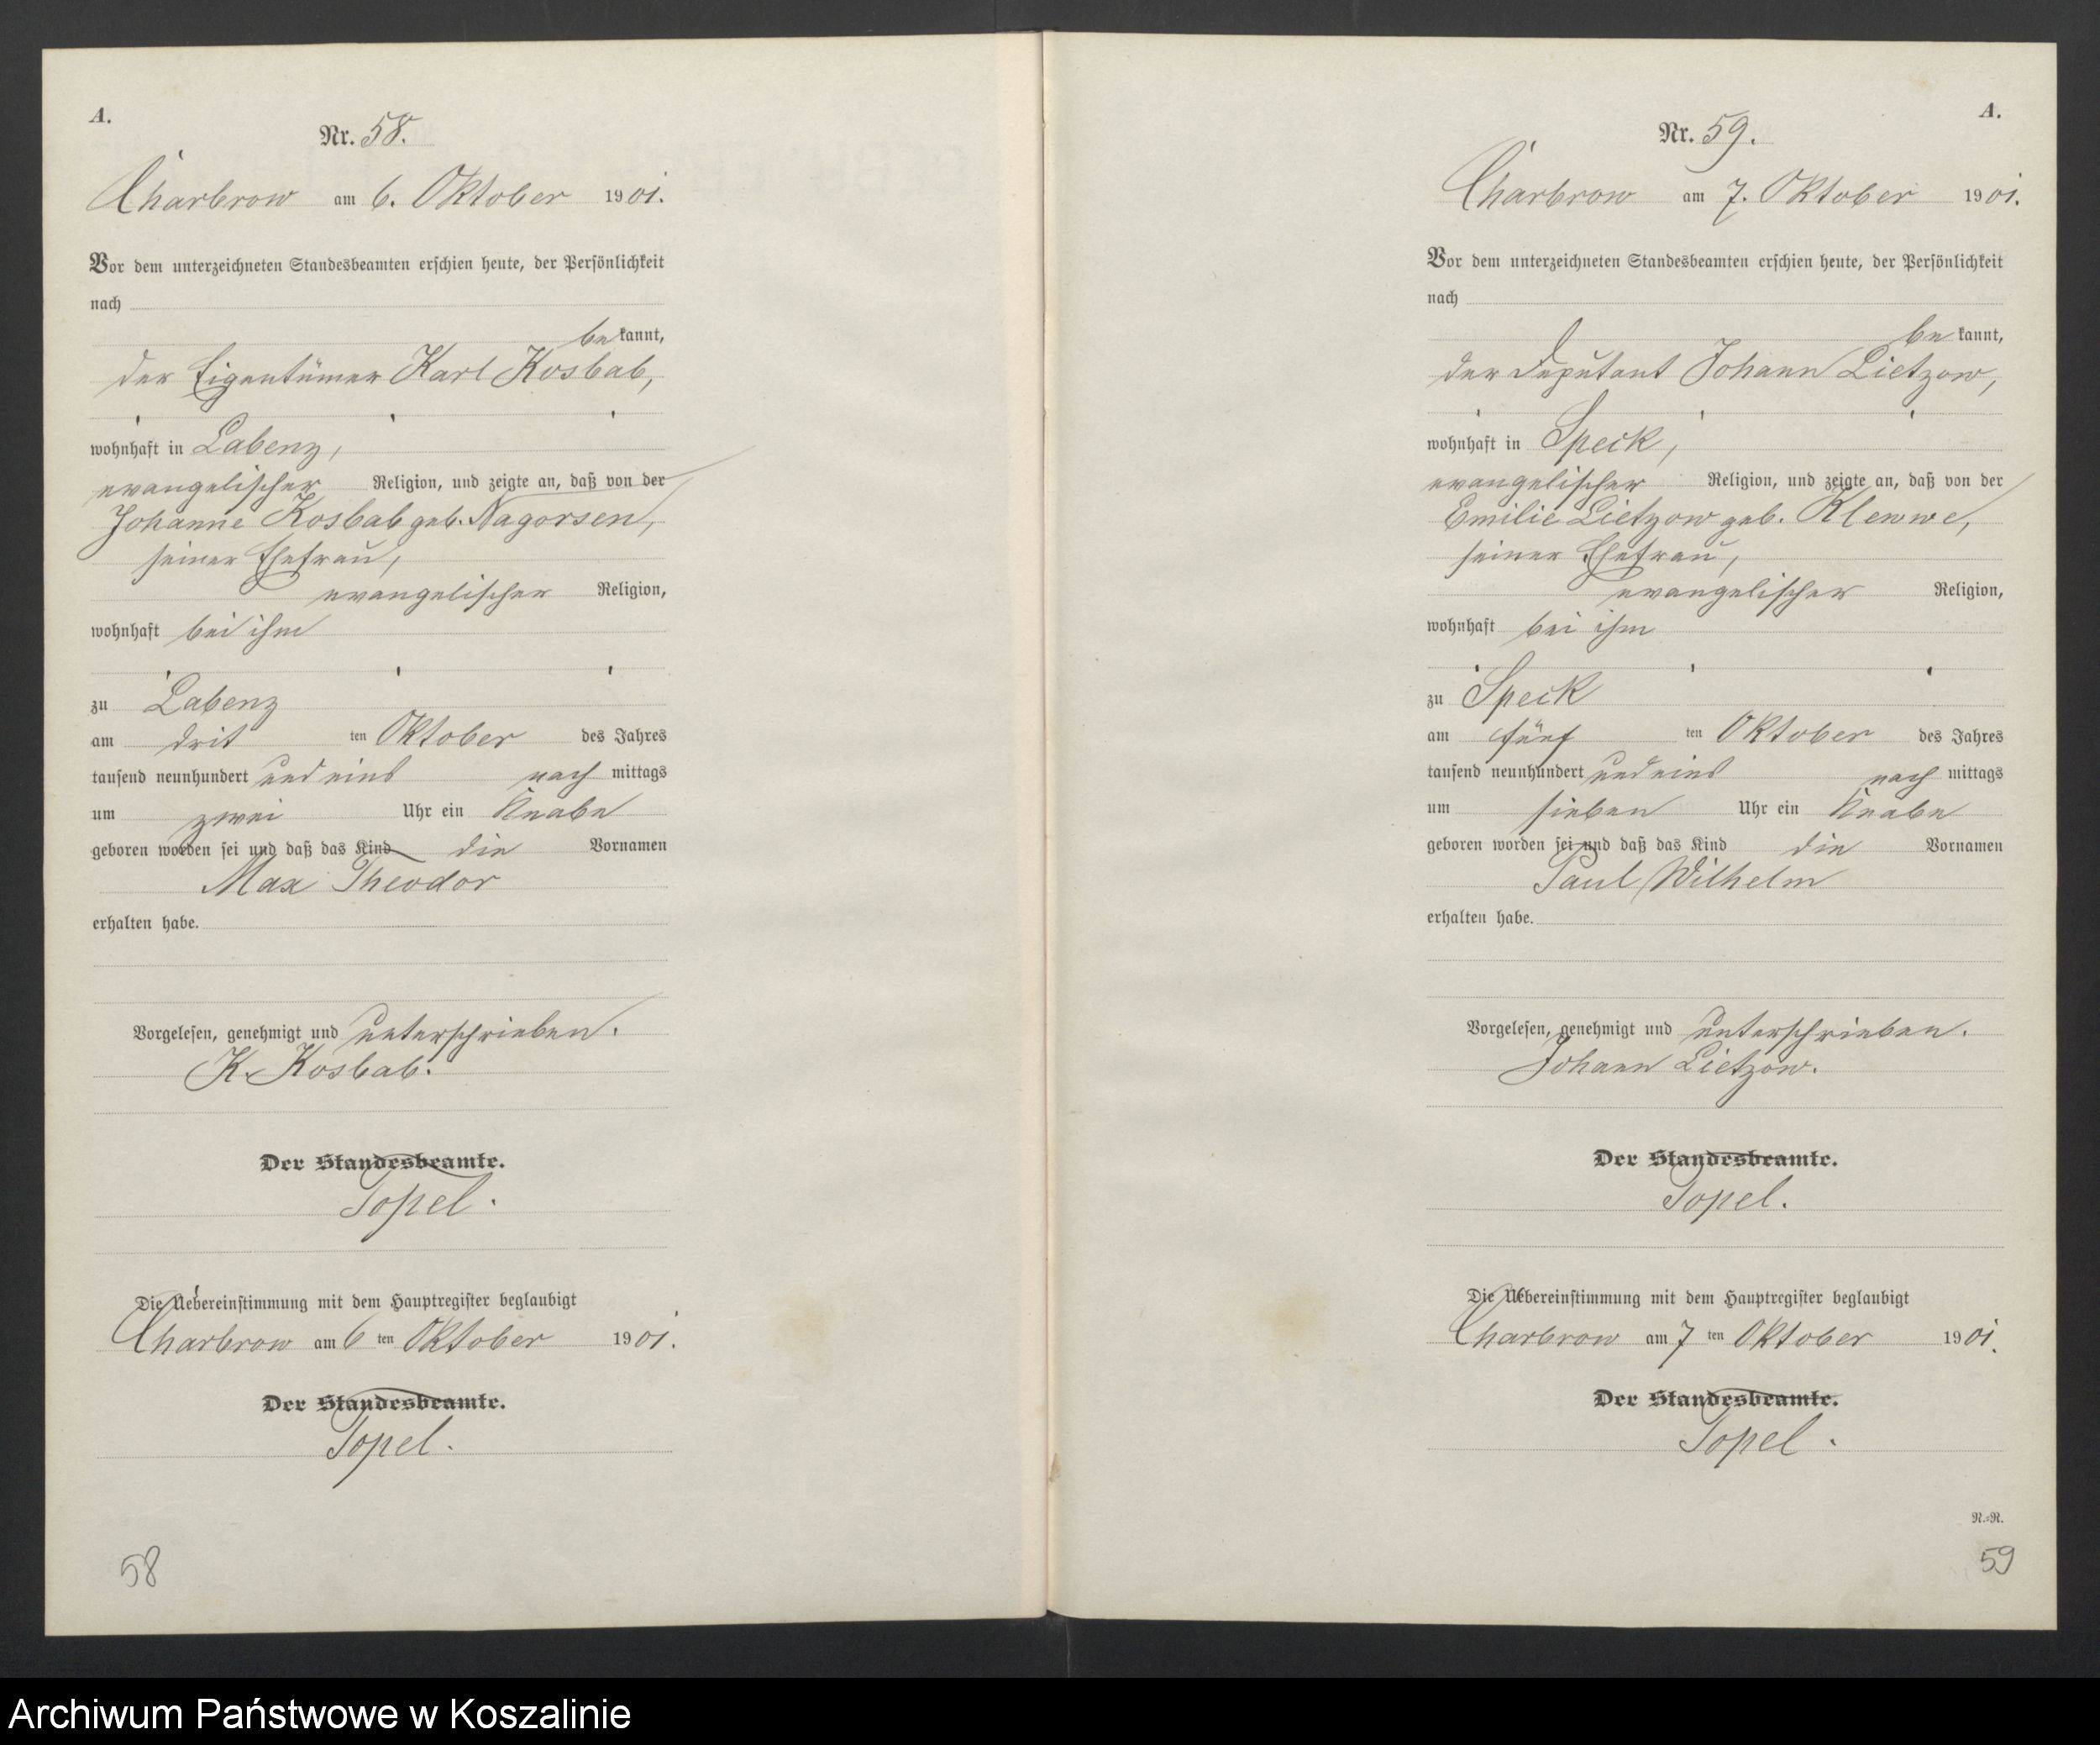 A.
Nr. 58.
Charbrow am 6. Oktober 1901.
Vor dem unterzeichneten Standesbeamten erschien heute, der Persönlichkeit
nach
bekannt,
der Eigentümer Karl Kosbab,
wohnhaft in Labenz,
evangelischer Religion, und zeigte an, daß von der
Johanne Kosbab geb. Nagorsen,
seiner Ehefrau,
evangelischer Religion,
wohnhaft bei ihm
zu Labenz
am drit ten Oktober des Jahres
tausend neunhundert und eins nach mittags
um zwei Uhr ein Knabe
geboren worden sei und daß das Kind die Vornamen
Max Theodor
erhalten habe.
Vorgelesen, genehmigt und unterschrieben.
K. Kosbab.
Der Standesbeamte.
Topel.
Die Uebereinstimmung mit dem Hauptregister beglaubigt
Charbrow am 6 ten Oktober 1901.
Der Standesbeamte.
Topel.
58
A.
Nr. 59.
Charbrow am 7. Oktober 1901.
Vor dem unterzeichneten Standesbeamten erschien heute, der Persönlichkeit
nach
bekannt,
der Deputant Johann Lietzow,
wohnhaft in Speck,
evangelischer Religion, und zeigte an, daß von der
Emilie Lietzow geb. Klewwe,
seiner Ehefrau,
evangelischer Religion,
wohnhaft bei ihm
zu Speck
am fünf ten Oktober des Jahres
tausend neunhundert und eins nach mittags
um sieben Uhr ein Knabe
geboren worden sei und daß das Kind die Vornamen
Paul Wilhelm
erhalten habe.
Vorgelesen, genehmigt und unterschrieben.
Johann Lietzow.
Der Standesbeamte.
Topel.
Die Uebereinstimmung mit dem Hauptregister beglaubigt
Charbrow am 7 ten Oktober 1901.
Der Standesbeamte.
Topel.
R.=R.
59
Archiwum Państwowe w Koszalinie